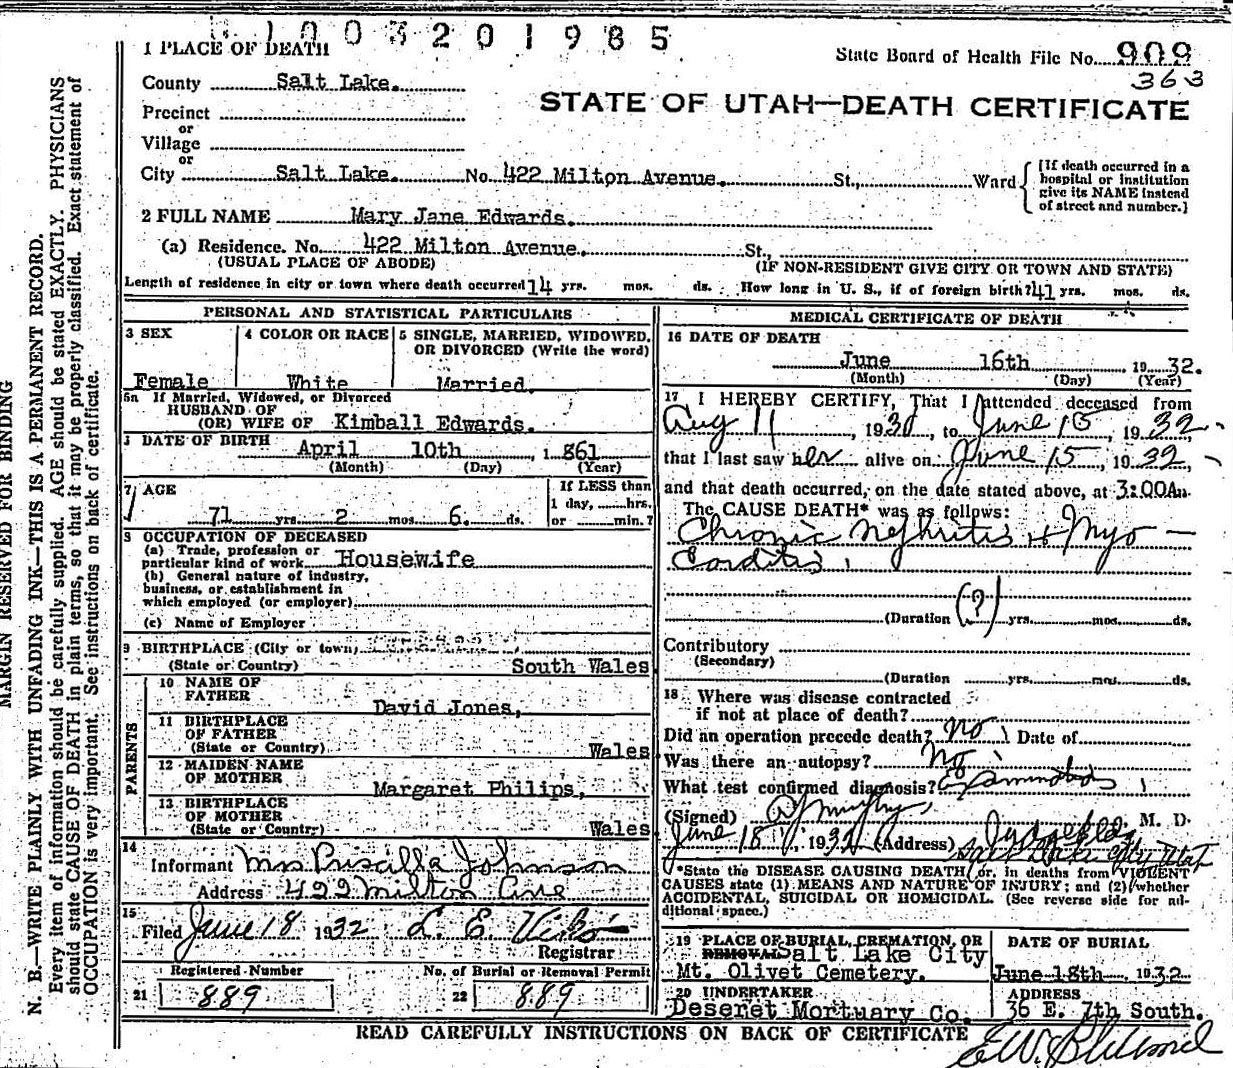 1003201985
1 PLACE OF DEATH
State Board of Health File No. 909
363
County Salt Lake.
STATE OF UTAH—DEATH CERTIFICATE
Precinct
or
Village
or
City Salt Lake. No. 422 Milton Avenue. St., Ward
[If death occurred in a
hospital or institution
give its NAME instead
of street and number.]
2 FULL NAME Mary Jane Edwards.
(a) Residence. No. 422 Milton Avenue. St.,
(USUAL PLACE OF ABODE) (IF NON-RESIDENT GIVE CITY OR TOWN AND STATE)
Length of residence in city or town where death occurred 14 yrs. mos. ds. How long in U. S., if of foreign birth? 41 yrs. mos. ds.
PERSONAL AND STATISTICAL PARTICULARS
3 SEX
Female
4 COLOR OR RACE
White
5 SINGLE, MARRIED, WIDOWED,
OR DIVORCED (Write the word)
Married.
5a If Married, Widowed, or Divorced
HUSBAND OF
(OR) WIFE OF Kimball Edwards.
DATE OF BIRTH
April 10th, 1861
(Month) (Day) (Year)
7 AGE
71 yrs. 2 mos. 6. ds.
If LESS than
1 day, hrs.
or min.?
8 OCCUPATION OF DECEASED
(a) Trade, profession or
particular kind of work Housewife
(b) General nature of industry,
business, or establishment in
which employed (or employer)
(c) Name of Employer
9 BIRTHPLACE (City or town)
(State or Country) South Wales
PARENTS
10 NAME OF
FATHER
David Jones,
11 BIRTHPLACE
OF FATHER
(State or Country) Wales
12 MAIDEN NAME
OF MOTHER
Margaret Philips,
13 BIRTHPLACE
OF MOTHER
(State or Country) Wales
14
Informant Mrs Priscilla Johnson
Address 422 Milton Ave
15
Filed June 18 1932 L. E.
Registrar
Registered Number
21 889
No. of Burial or Removal Permit
22 889
MEDICAL CERTIFICATE OF DEATH
16 DATE OF DEATH
June 16th 1932.
(Month) (Day) (Year)
17 I HEREBY CERTIFY, That I attended deceased from
Aug 11, 1930, to June 15, 1932,
that I last saw her alive on June 15, 1932,
and that death occurred, on the date stated above, at 3:00Am.
The CAUSE DEATH* was as follows:
Chronic Nephritis & Myo-
Carditis.
(Duration (?) yrs. mos. ds.
Contributory
(Secondary)
(Duration yrs. mos. ds.
18 Where was disease contracted
if not at place of death?
Did an operation precede death? No Date of
Was there an autopsy? No
What test confirmed diagnosis? Examination
(Signed) M. D.
June 18, 1932 (Address)
Salt Lake City Utah
*State the DISEASE CAUSING DEATH, or, in deaths from VIOLENT
CAUSES state (1) MEANS AND NATURE OF INJURY; and (2) whether
ACCIDENTAL, SUICIDAL OR HOMICIDAL. (See reverse side for ad-
ditional space.)
19 PLACE OF BURIAL, CREMATION, OR
REMOVAL Salt Lake City
Mt. Olivet Cemetery.
DATE OF BURIAL
June 18th. 1932
20 UNDERTAKER
Deseret Mortuary Co.
ADDRESS
36 E. 7th South.
READ CAREFULLY INSTRUCTIONS ON BACK OF CERTIFICATE
MARGIN RESERVED FOR BINDING
N. B.—WRITE PLAINLY WITH UNFADING INK—THIS IS A PERMANENT RECORD.
Every item of information should be carefully supplied. AGE should be stated EXACTLY. PHYSICIANS
should state CAUSE OF DEATH in plain terms, so that it may be properly classified. Exact statement of
OCCUPATION is very important. See instructions on back of certificate.